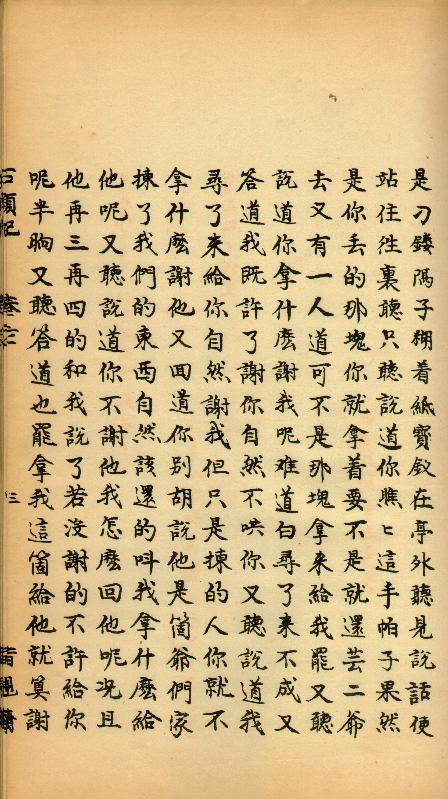 是刁鏤隔子糊着紙寳釵在亭外聽見說話便
站住徃裏聽只聽說道你瞧〻這手帕子果然
是你丢的那塊你就拿着要不是就還芸二爺
去又有一人道可不是那塊拿來給我罷又聽
說道你拿什麽謝我呢难道白尋了來不成又
答道我既許了謝你自然不哄你又聽說道我
尋了來給你自然謝我但只是揀的人你就不
拿什麽謝他又回道你别胡說他是箇爺們家
揀了我們的東西自然該還的呌我拿什麽給
他呢又聽說道你不謝他我怎麽回他呢况且
他再三再四的和我說了若沒謝的不許給你
呢半晌又聽答道也罷拿我這箇給他就筭謝
石頭記
三